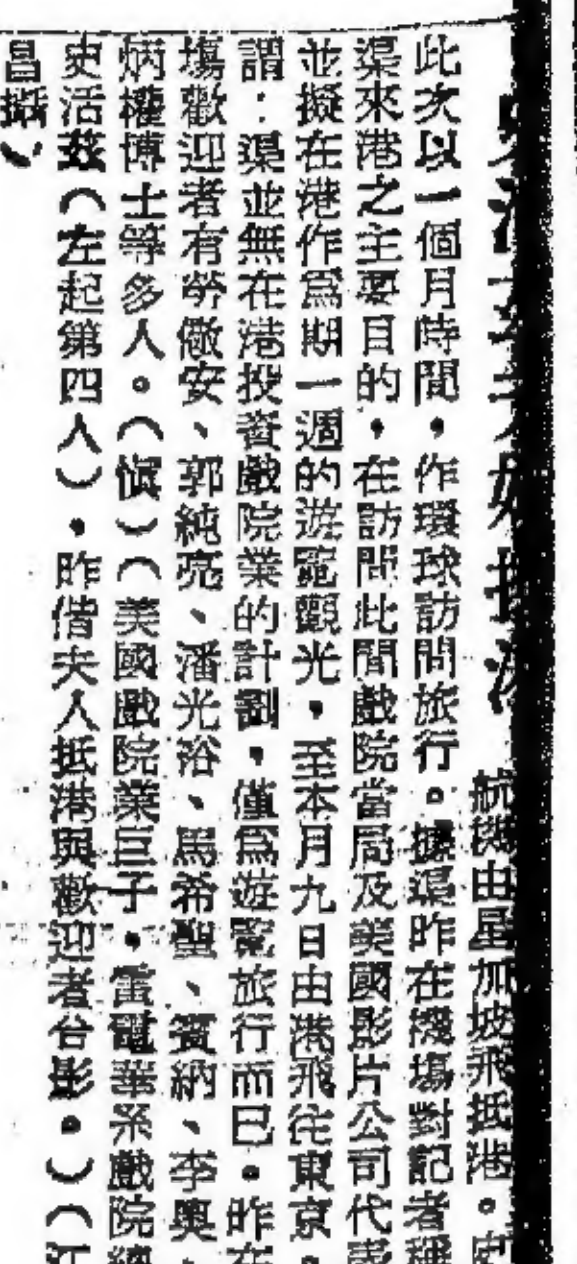 航機由星加坡飛抵港。
此次以一個月時間，作環球訪問旅行。據渠昨在機場對記者稱
渠來港之主要目的，在訪問此間戲院當局及美國影片公司代表
並擬在港作爲期一週的遊覽觀光，至本月九日由港飛往東京。
謂：渠並無在港投資戲院業的計劃，僅爲遊覽旅行而已。昨在
塲歡迎者有勞儆安、郭純亮、潘光裕、馬希聖、賓納、李奧、
炳權博士等多人。（愼）（美國戲院業巨子，雷電華系戲院總
史活茲（左起第四人），昨偕夫人抵港與歡迎者合影。）（江
昌攝）